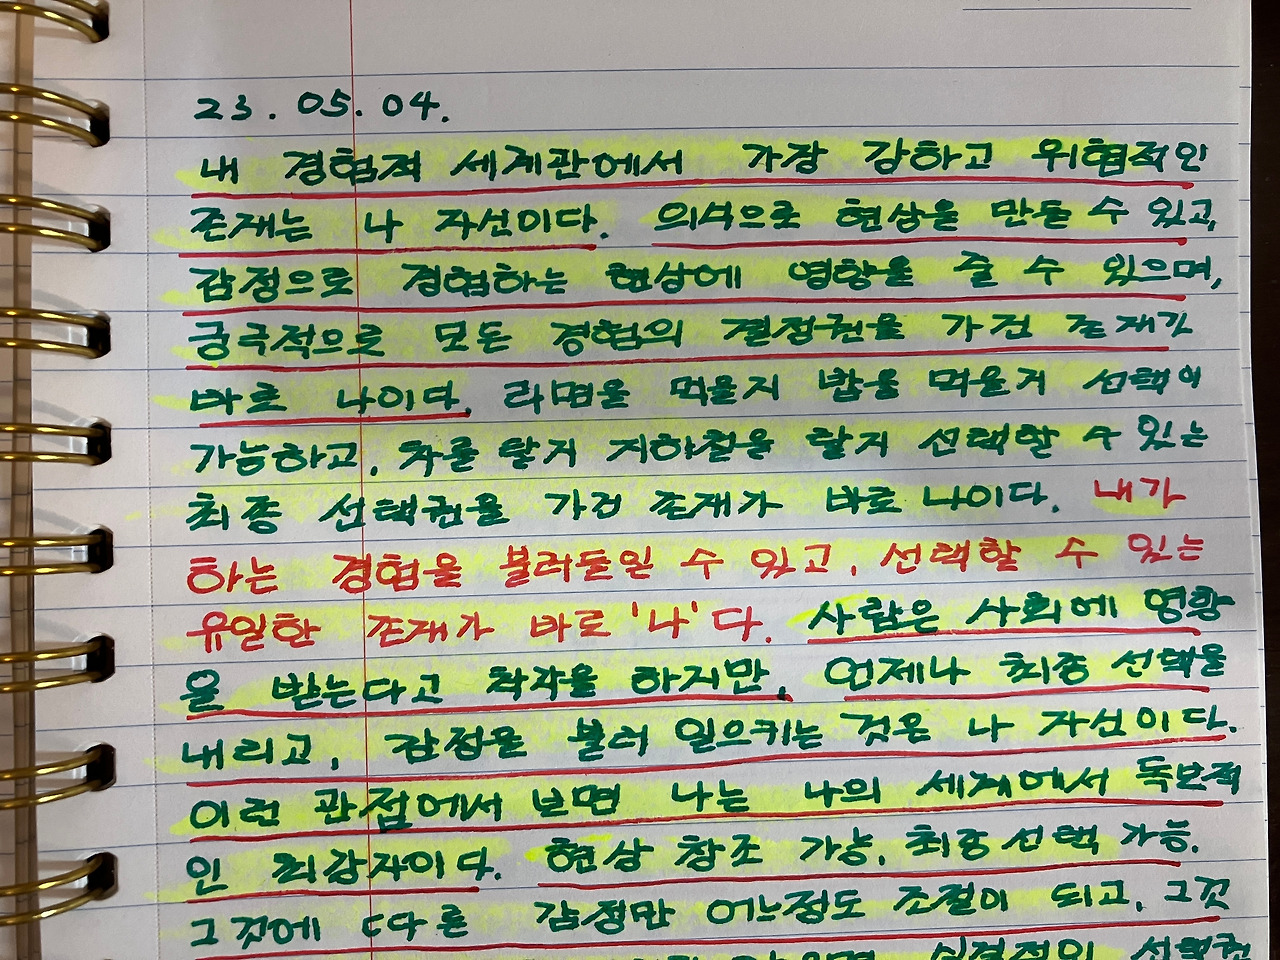 23. 05. 04.
내 경험적 세계관에서 가장 강하고 위협적인
존재는 나 자신이다. 의식으로 현상을 만들 수 있고,
감정으로 경험하는 현상에 영향을 줄 수 있으며,
궁극적으로 모든 경험의 결정권을 가진 존재가
바로 나이다. 라면을 먹을지 밥을 먹을지 선택이
가능하고, 차를 탈지 지하철을 탈지 선택할 수 있는
최종 선택권을 가진 존재가 바로 나이다. 내가
하는 경험을 불러들일 수 있고, 선택할 수 있는
유일한 존재가 바로 '나'다. 사람은 사회에 영향
을 받는다고 착각을 하지만, 언제나 최종 선택을
내리고, 감정을 불러 일으키는 것은 나 자신이다.
이런 관점에서 보면 나는 나의 세계에서 독보적
인 최강자이다. 현상 창조 가능, 최종 선택 가능.
그것에 따른 감정만 어느정도 조절이 되고, 그것
실질적인 선택권